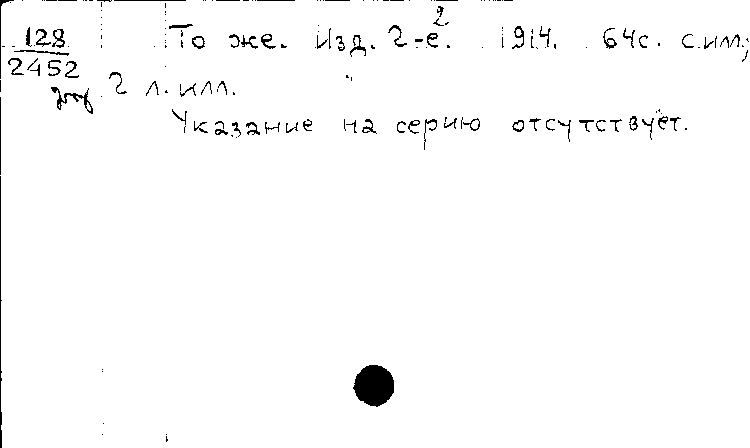 128 То же. Изд. 2-е.² 1914. 64с. с илл;
2452
2 л. илл.
Указание на серию отсутствует.